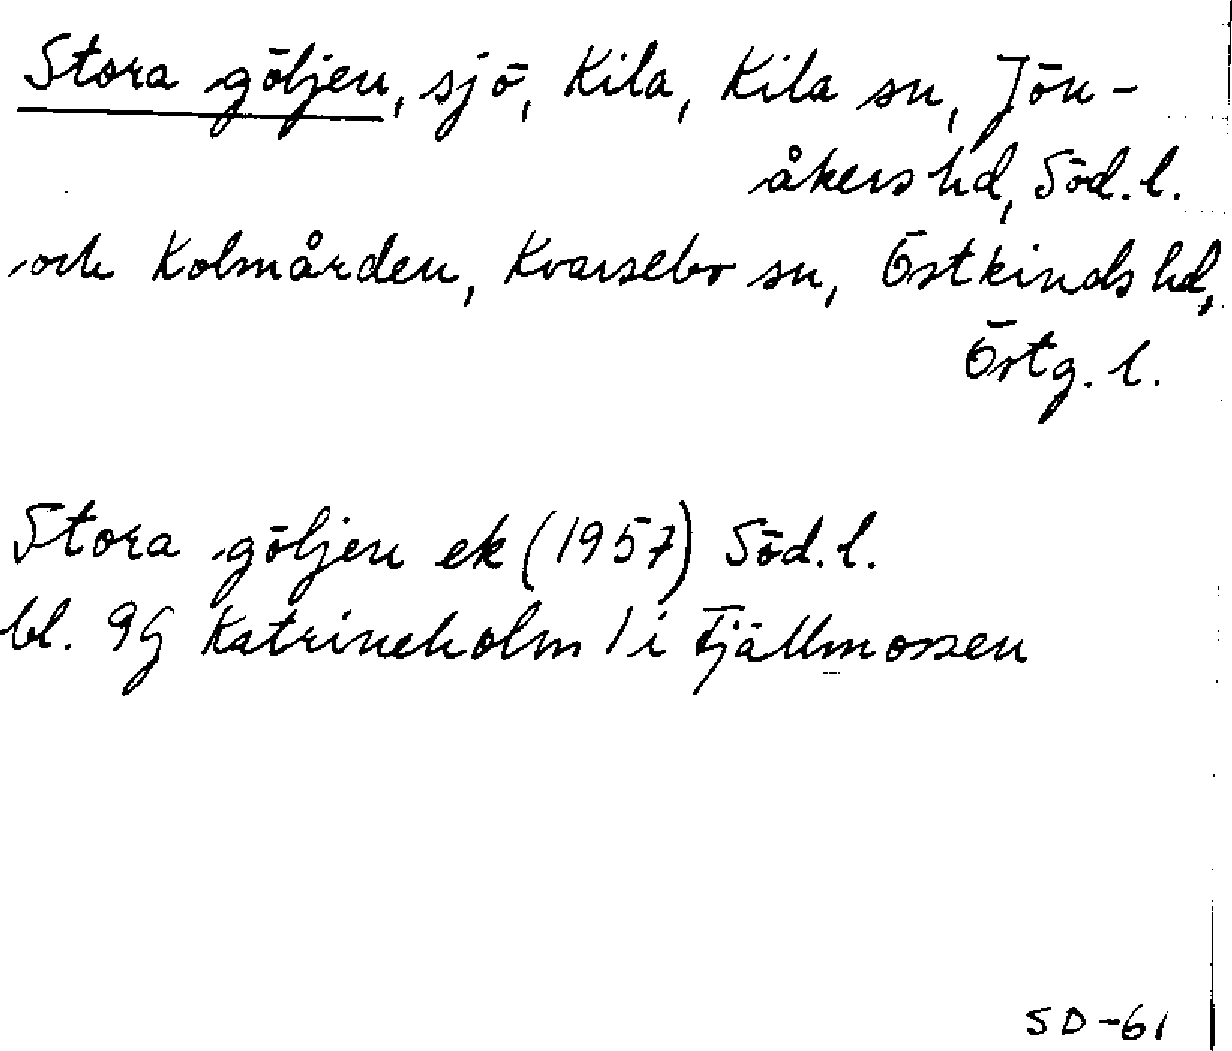 Stora göljen, sjö, Kila, Kila sn, Jön-
åkers hd, Söd. l.
och Kolmården, Kvarsebo sn, Östkinds hd,
Östg. l.
Stora göljen ek (1957) Söd. l.
bl. 9G Katrineholm 1 i Fjällmossen
SD-61